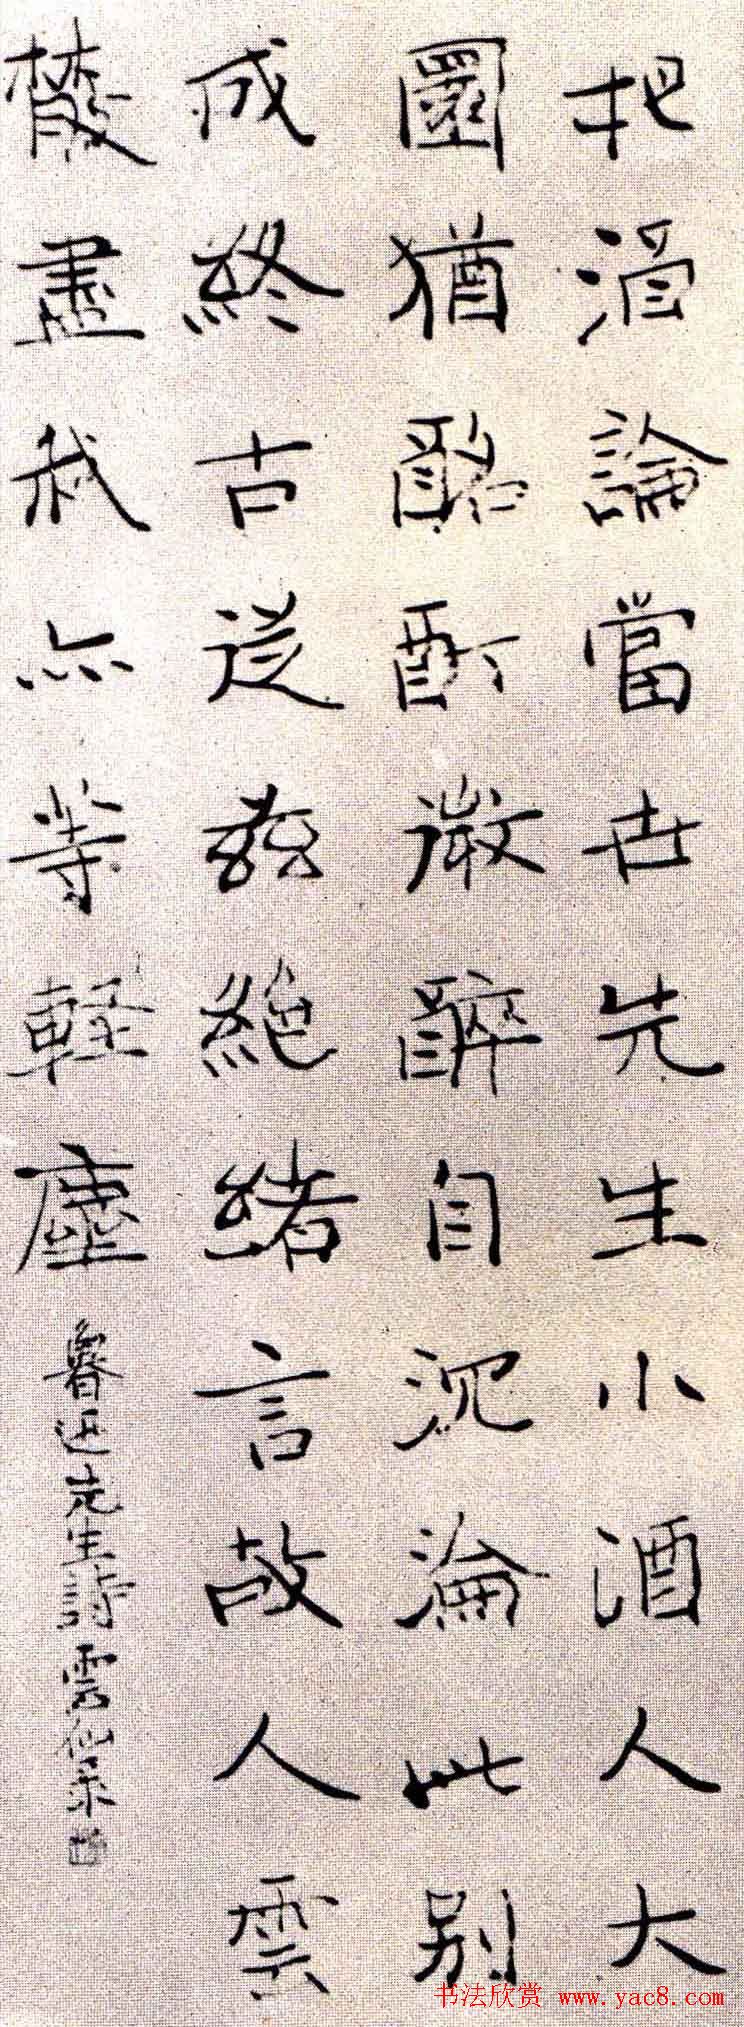 把酒論當世先生小酒人大
圜猶酩酊微醉自沉淪此別
成終古從茲絕緒言故人雲
散盡我亦等輕塵
魯迅先生詩
书法欣赏 www.yac8.com